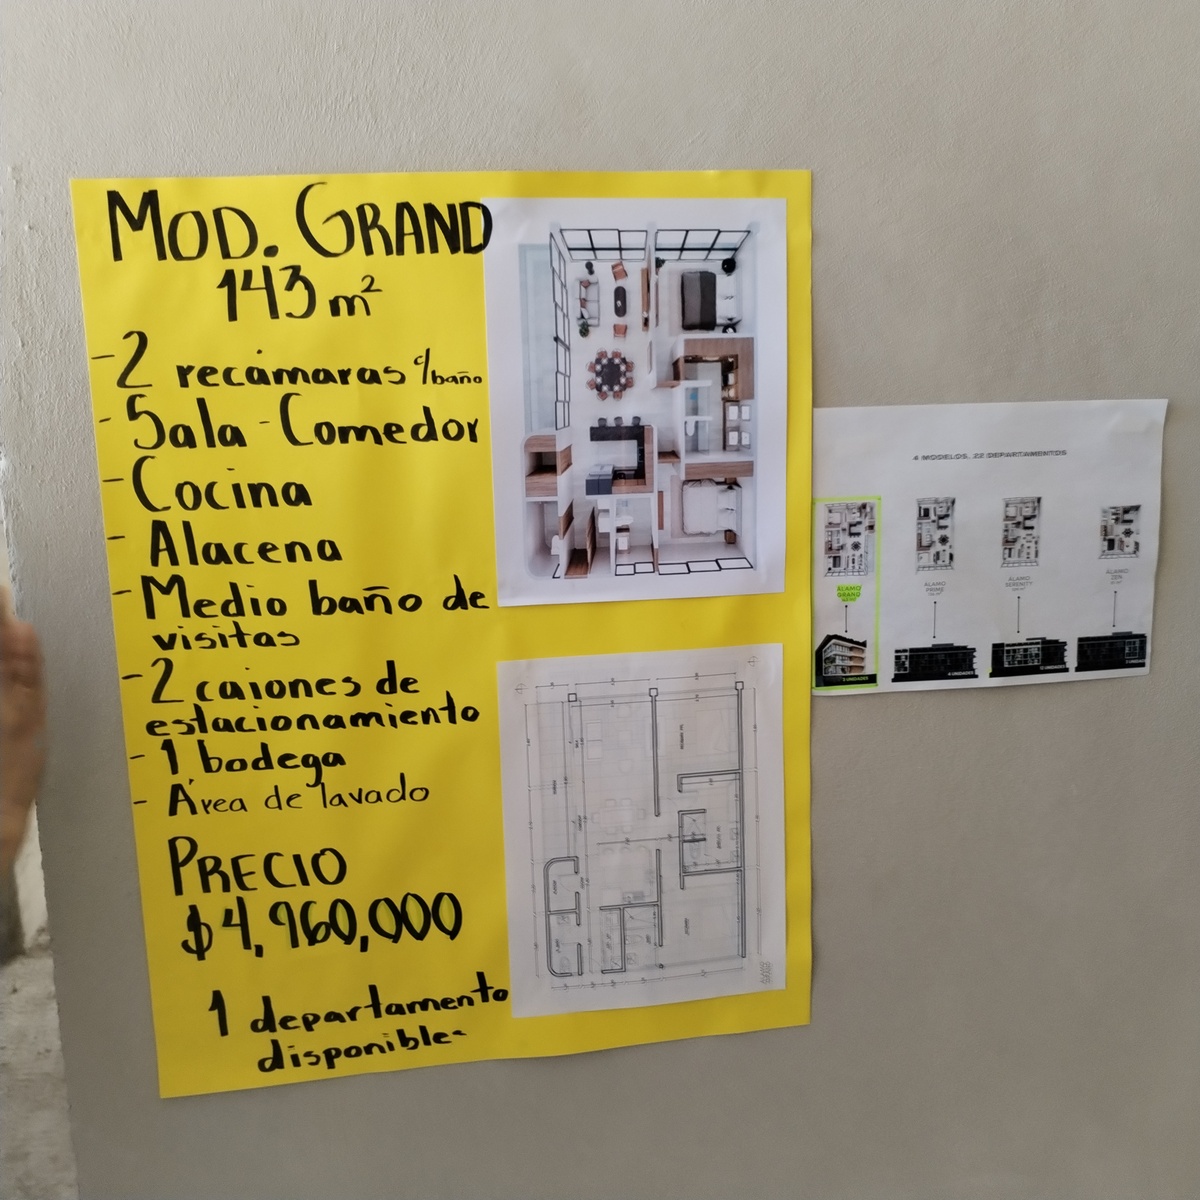 MOD. GRAND
143 m²
- 2 recámaras c/baño
- Sala - Comedor
- Cocina
- Alacena
- Medio baño de
visitas
- 2 cajones de
estacionamiento
- 1 bodega
- Área de lavado
PRECIO
$4,960,000
1 departamento
disponible
4 MODELOS, 22 DEPARTAMENTOS
ÁLAMO
GRAND
ÁLAMO
PRIME
ÁLAMO
SERENITY
ÁLAMO
ZEN
3 UNIDADES
4 UNIDADES
UNIDADES
UNIDADES